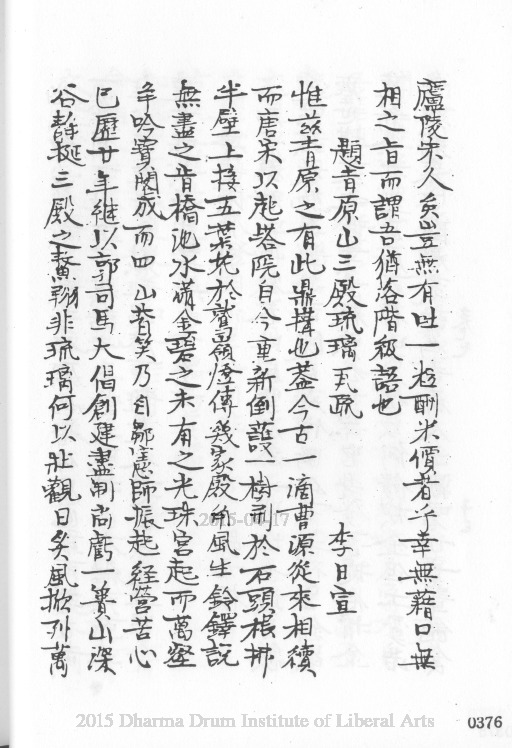 廬陵宋人矣豈無有吐一粒酬米價者乎幸無藉口無
相之旨而謂吾猶落階級語也
題青原山三殿琉璃瓦疏
李日宣
惟茲青原之有此鼎搆也蓋今古一滴曹源從來相續
而唐宋以起塔院自今重新倒護一樹剖於石頭根拂
半壁上接五葉花於嶺燈傳幾家殿角風生鈴鐸說
無盡之音橋池水滿金碧之未有之光珠宮起而萬壑
爭吟寶閣成而四山皆笑乃自鄒憲師振起經營苦心
已歷廿年繼以郭司馬大倡創建盡制尚虧一簣山深
谷靜挺三殿之鰲翔非琉璃何以壯觀日炙風掀列萬
2015-04-17
2015 Dharma Drum Institute of Liberal Arts
0376